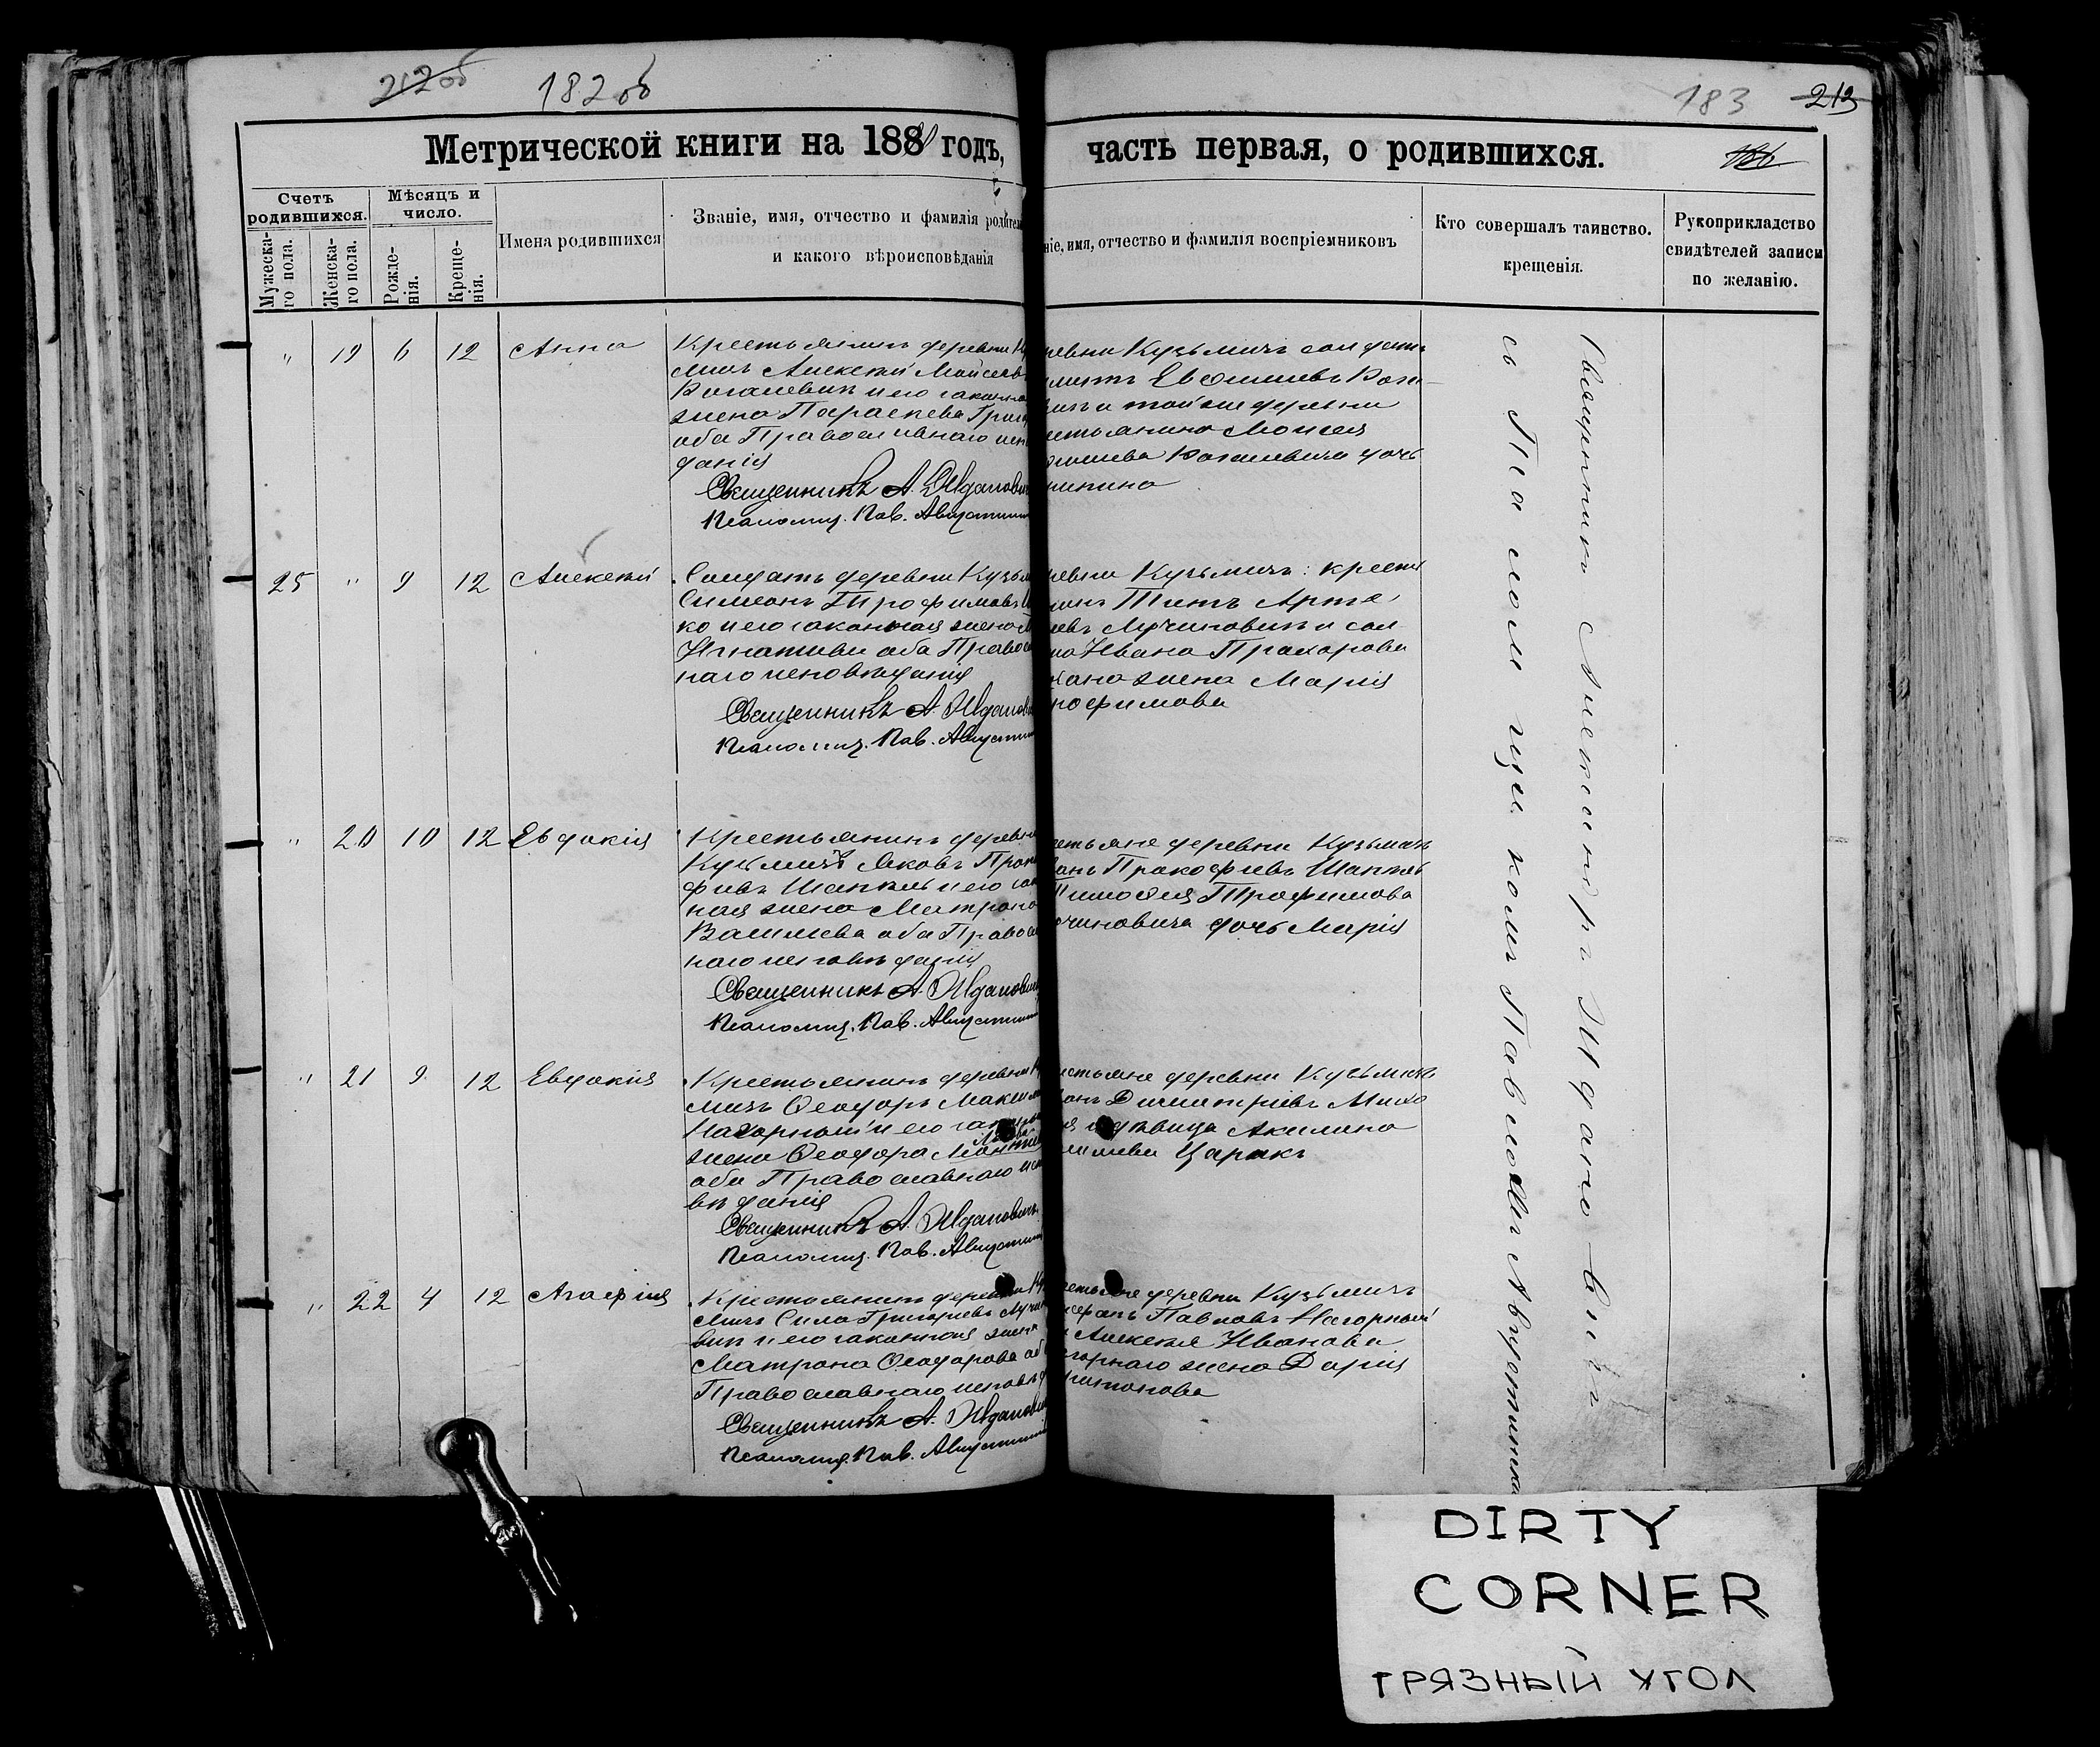 212об 182об
183 213
Метрической книги на 188 годъ,
часть первая, о родившихся.
186
Счетъ родившихся.
Мужеска-го пола.
Женска-го пола.
Мѣсяцъ и число.
Рожде-нія.
Креще-нія.
Имена родившихся
Званіе, имя, отчество и фамилія родител
и какого вѣроисповѣданія
ніе, имя, отчество и фамилія воспріемниковъ
Кто совершалъ таинство.
крещенія.
Рукоприкладство
свидѣтелей записи
по желанію.
" 19 6 12 Анна
Крестьянинъ деревни Ку
мичъ Алексѣй Мойсеевъ
и его законна
жена Параскева Григ
оба Православнаго испо
данія
Священникъ А. Ждановичъ
Псаломщ. Пав. Августин
ревни Кузьмичъ солдатъ
Евфимовъ
и той же деревни
стьянина Моисея
дочь
25 " 9 12 Алексѣй
Солдатъ деревни Кузьм
Симеонъ Трофимовъ
ко и его законная жена
Игнатиева оба Правосл
наго исповѣданія
Священникъ А. Жданов
Псаломщ. Пав. Августин
ревни Кузьмичъ: крестья
нинъ Титъ Арте
евъ Лучиновичъ и сол
та Ивана Прахорова
жена Марія
рофимова
" 20 10 12 Евдокія
Крестьянинъ деревни
Кузьмичъ Яковъ Прок
фіевъ Шаптыль и его зак
ная жена Матрона
Васильева оба Правосл
наго исповѣданія
Священникъ А. Жданович
Псаломщ. Пав. Августин
стьяне деревни Кузьмичъ
Прокофиевъ
Тимофея Трофимова
учиновича дочь Марія
" 21 9 12 Евдокія
Крестьянинъ деревни К
мичъ Ѳеодоръ Максим
Нагорный и его законн
жена Ѳеодора
оба Православнаго исп
вѣданія
Священникъ А. Ждановичъ
Псаломщ. Пав. Августин
стьяне деревни Кузьмичъ
Димитриевъ
дѣвица Акилина
Царикъ
" 22 4 12 Агафія
Крестьянинъ деревни К
мичъ Сила Григорьевъ Лучин
вич и его законная жена
Матрона Ѳеодорова об
Православнаго исповѣд
Священникъ А. Жданови
Псаломщ. Пав. Августин
стьяне деревни Кузьмичъ
Павловъ Нагорный
Алексѣя Иванова
горнаго жена Дарія
Священникъ Александръ Ждановичъ
съ Псаломщикомъ Павломъ Августин
DIRTY
CORNER
ГРЯЗНЫЙ УГОЛ